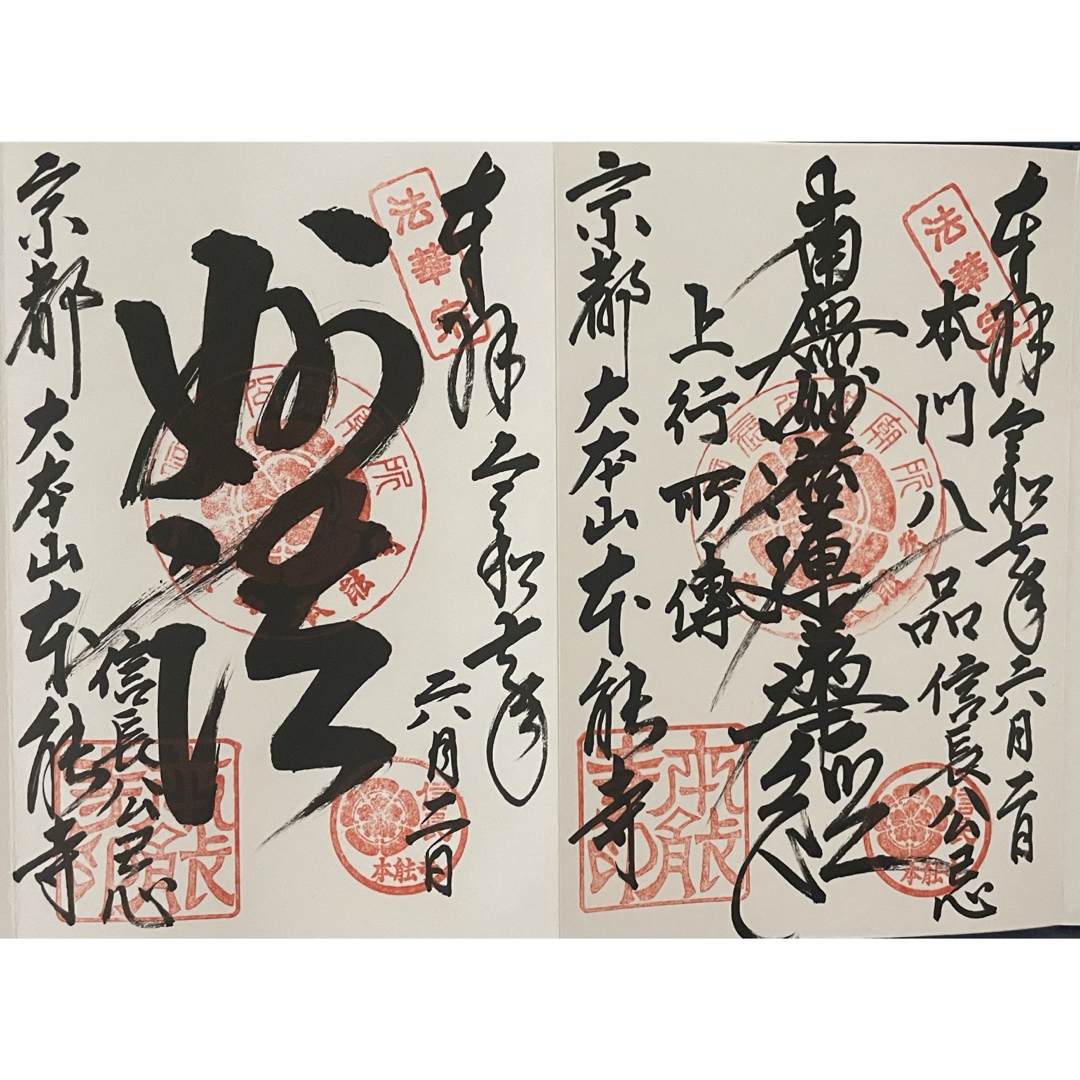 奉拝
令和七年
六月二日
妙法
信長公忌
京都
大本山本能寺
法華宗
本能寺
奉拝
令和七年六月二日
本門八品
信長公忌
南無妙法蓮華経
上行所傳
京都
大本山本能寺
法華宗
本能寺